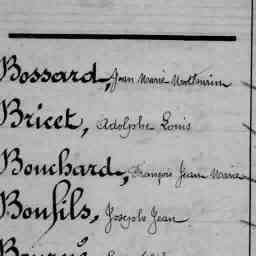 Bossard, Jean Marie Mathurin
Bricet, Adolphe Louis
Bouchard, François Jean Marie
Bonfils, Joseph Jean